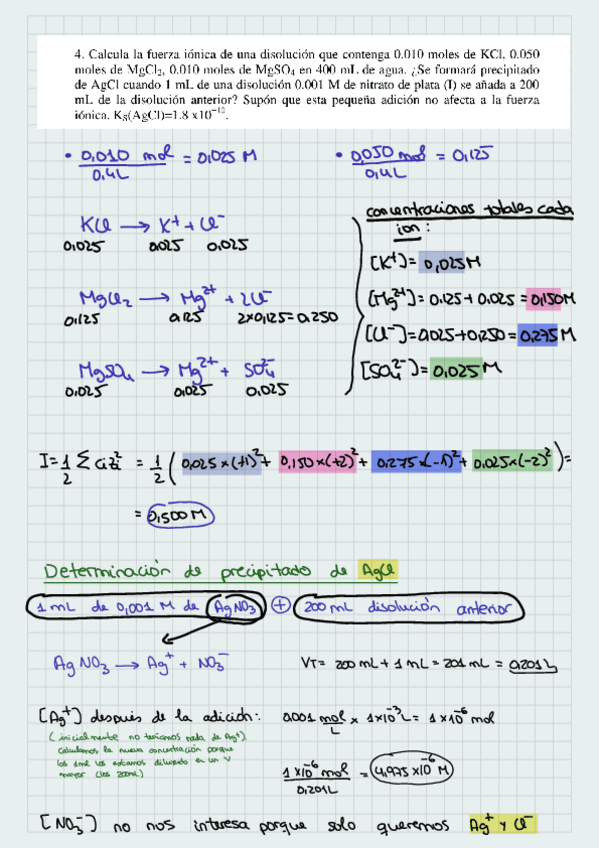 4. Calcula la fuerza iónica de una disolución que contenga 0.010 moles de KCl, 0.050
moles de MgCl₂, 0.010 moles de MgSO₄ en 400 mL de agua. ¿Se formará precipitado
de AgCl cuando 1 mL de una disolución 0.001 M de nitrato de plata (I) se añada a 200
mL de la disolución anterior? Supón que esta pequeña adición no afecta a la fuerza
iónica. Kₛ(AgCl)=1.8 x10⁻¹⁰.
• 0,010 mol / 0,4L = 0,025 M
• 0,050 mol / 0,4L = 0,125
KCl → K⁺ + Cl⁻
0,025 0,025 0,025
MgCl₂ → Mg²⁺ + 2Cl⁻
0,125 0,125 2x0,125=0,250
MgSO₄ → Mg²⁺ + SO₄²⁻
0,025 0,025 0,025
concentraciones totales cada
ion:
[K⁺]= 0,025M
[Mg²⁺]= 0.125 + 0.025 = 0,150M
[Cl⁻]=0.025+0,250= 0,275 M
[SO₄²⁻]= 0,025 M
I= 1/2 Σ cᵢzᵢ² = 1/2 ( 0,025x(+1)²+ 0,150x(+2)²+ 0,275x(-1)²+ 0,025x(-2)² )=
= 0,500 M
Determinación de precipitado de AgCl
1 mL de 0,001 M de AgNO₃ + 200 mL disolución anterior
AgNO₃ → Ag⁺ + NO₃⁻
VT= 200 mL + 1 mL = 201 mL = 0,201L
[Ag⁺] después de la adición: 0.001 mol/L x 1x10⁻³L = 1x10⁻⁶ mol
(inicialmente no teníamos nada de Ag⁺)
Calculamos la nueva concentración porque
los 1ml los estamos diluyendo en un V
mayor (los 200mL)
1x10⁻⁶ mol / 0,201L = 4,975x10⁻⁶ M
[NO₃⁻] no nos interesa porque solo queremos Ag⁺ y Cl⁻